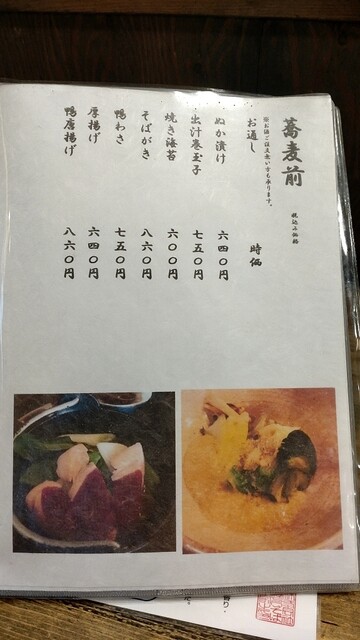 蕎麦前
税込み価格
※お酒ご注文無い方も承ります。
お通し 時価
ぬか漬け 六四〇円
出汁巻玉子 七五〇円
焼き海苔 六〇〇円
そばがき 八六〇円
鴨わさ 七五〇円
厚揚げ 六四〇円
鴨唐揚げ 八六〇円